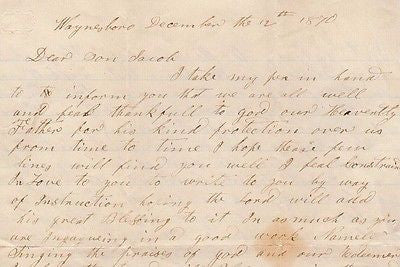 Waynesboro December the 12th 1870
Dear Son Jacob
I take my pen in hand
to inform you that we are all well
and feal thankfull to god our Heavently
Father for his kind protection over us
from time to time I hope these few
lines will find you well I feal constrain
In Love to you to write to you by way
of Instruction hoping the Lord will add
his great Blessing to it In as much as you
are Ingageing in a good work Namele
Singing the praises of god and our Redeemer